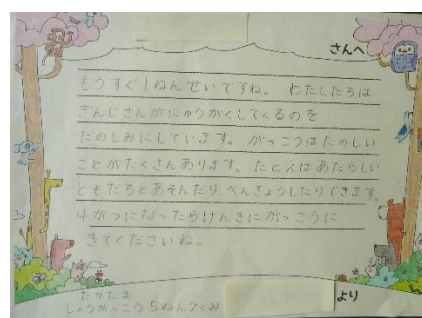 さんへ
もうすぐ1ねんせいですね。わたしたちは
ぎんじさんがにゅうがくしてくるのを
たのしみにしています。がっこうはたのしい
ことがたくさんあります。たとえばあたらしい
ともだちとあそんだり、べんきょうしたりできます。
4がつになったらげんきにがっこうに
きてくださいね。
より
たかだま
しょうがっこう5ねん2くみ